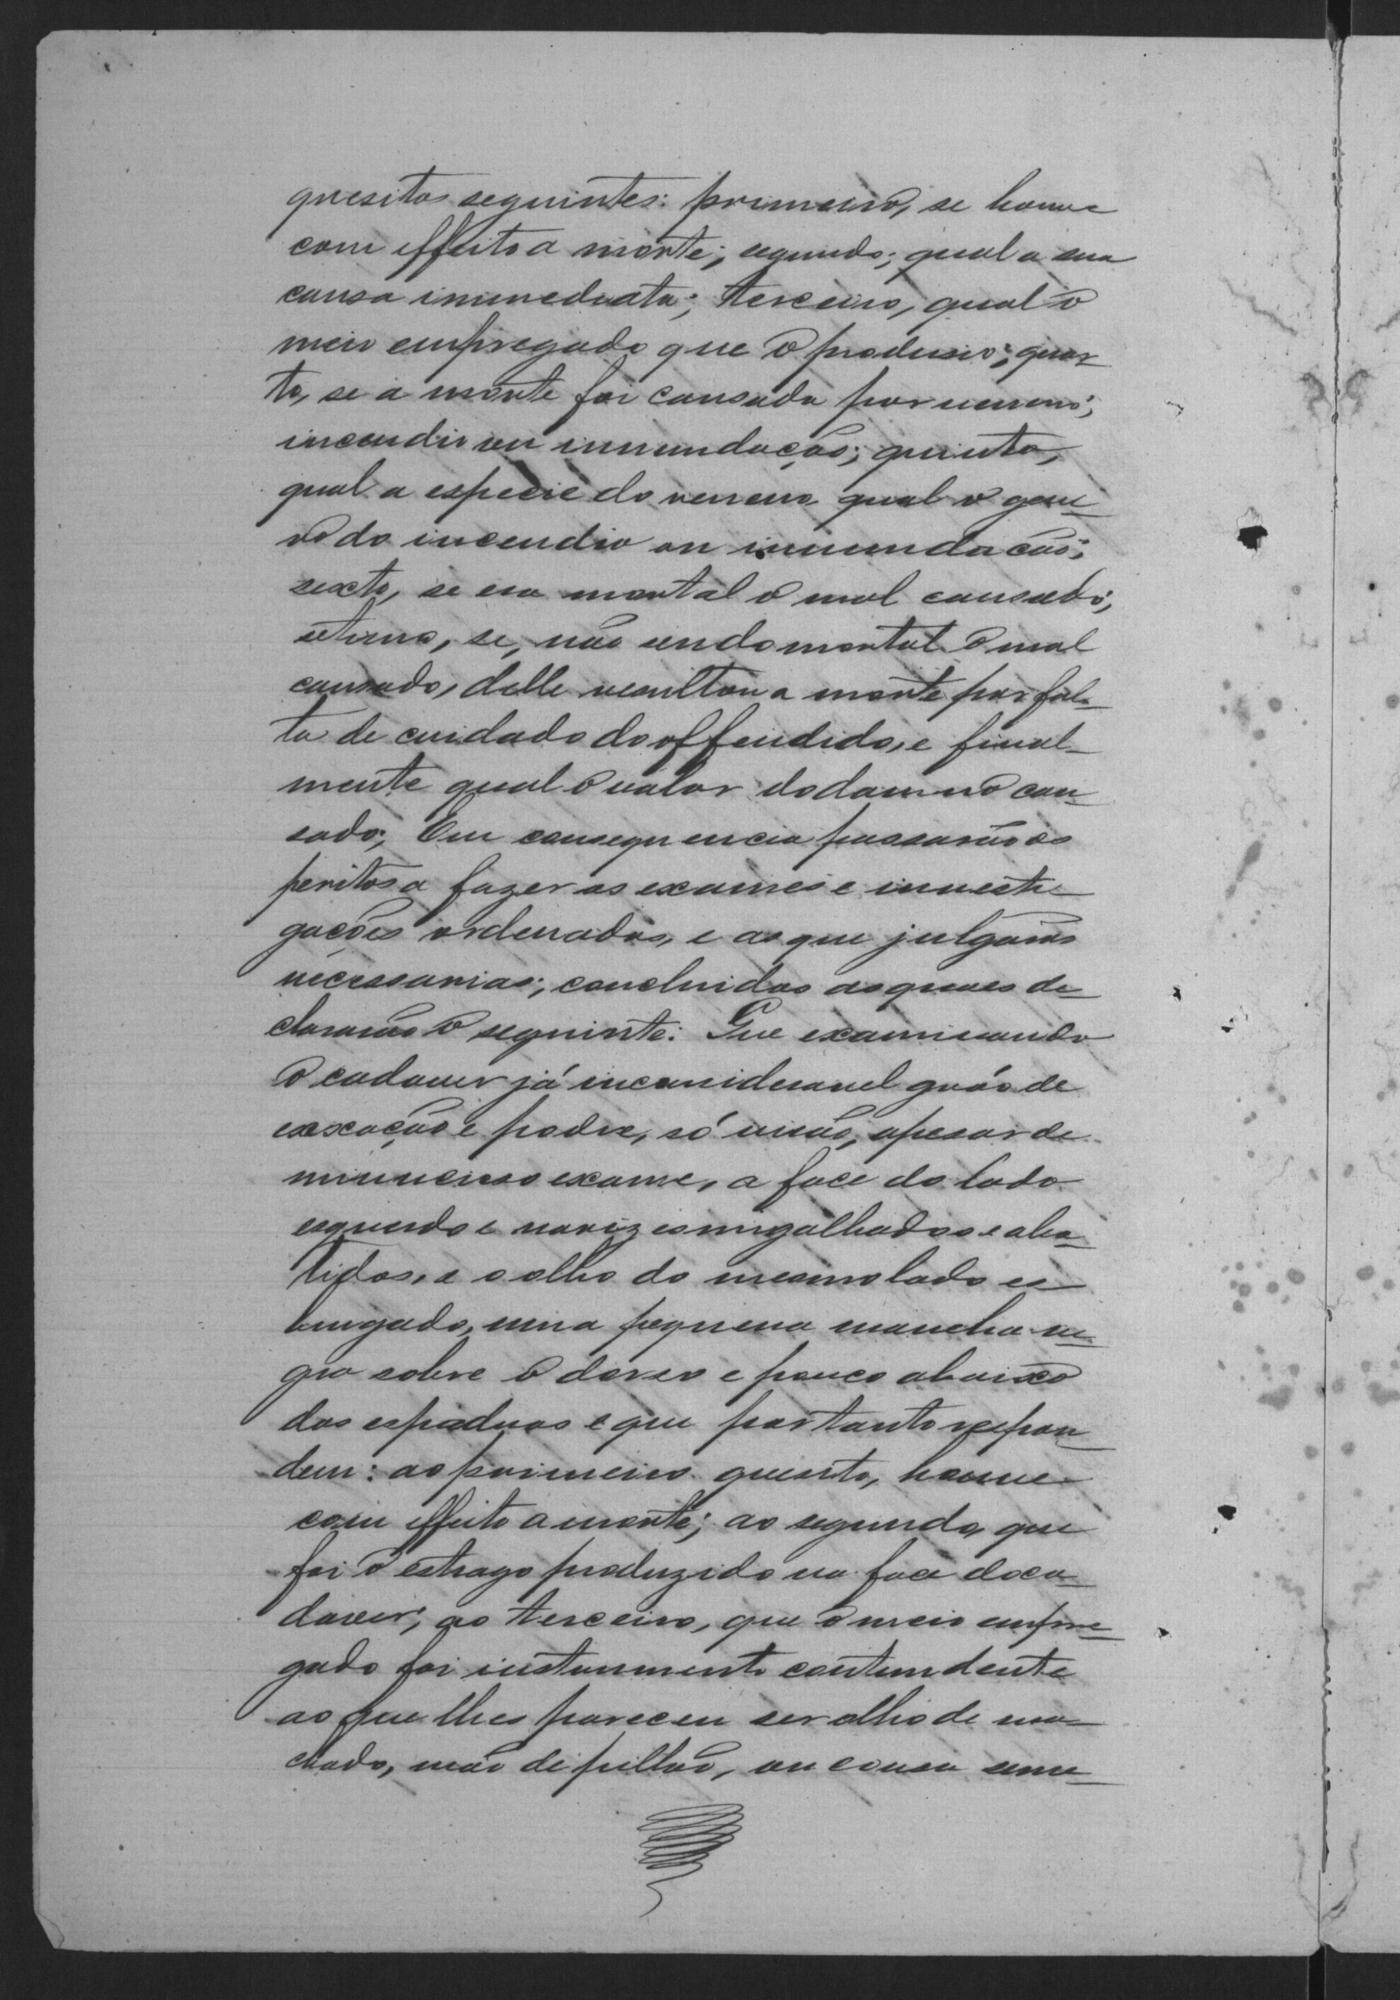 quesitos seguintes: primeiro, se houve
com effeito a morte; segundo; qual a sua
causa immediata; terceiro, qual o
meio empregado que o produsio; quar-
to, se a morte foi causada por veneno;
incendio ou innundação; quinto,
qual a especie do veneno qual o gene-
ro do incendio ou innundação;
sexto, se era mortal o mal causado;
setimo, se, não sendo mortal o mal
causado, delle resultou a morte por fal-
ta de cuidado do offendido, e final-
mente qual o valor do damno cau-
sado; Em consequencia passarão os
peritos a fazer os exames e investi-
gações ordenadas, e as que julgarão
necessarias; concluidas as quaes de-
clararão o seguinte: Que examinando
o cadaver já in consideravel gráo de
e podre, só virão, apesar de
minucioso exame, a face do lado
esquerdo e nariz esmigalhados e aba-
tidos, e o olho do mesmo lado es-
bugado, uma pequena mancha ne-
gra sobre o dorso e pouco abaixo
das espaduas e que portanto respon-
dem: ao primeiro quesito, houve
com effeito a morte; ao segundo, que
foi o estrago produzido na face do ca-
daver; ao terceiro, que o meio empre-
gado foi instrumento contundente
ao que lhes pareceu ser olho de ma-
chado, mão de pillão, ou cousa seme-